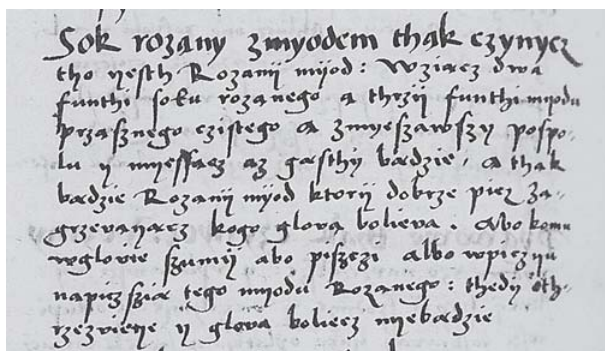 Sok rozany zmyodem thak czynycz
tho yesth Rozanij mijod : Wziacz dwa
funthi soku rozanego a thrzij funthi miodu
przasnego czistego a zmyeszawszy pospo-
lu y myessacz az gesthy badzie, a thak
badzie Rozanij mijod ktorij dobrze picz za-
grzevanacz kogo glova bolieva. Abo komu
wglovie szumij abo pisczi Albo wpiczyu
napicz szie tego mijodu Rozanego : thedij oth-
rzezvieye y glova boliecz niebadzie